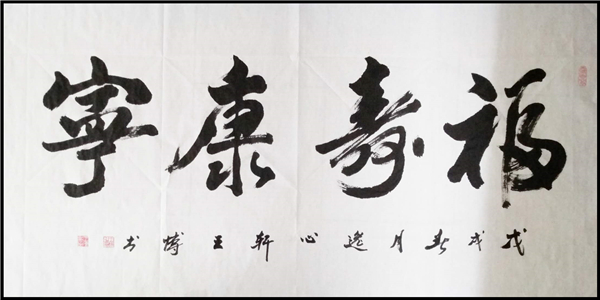 福壽康寧
戊戌春月逸心軒王博书